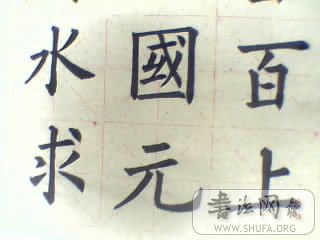 百上
國元
水求
書法网
WWW.SHUFA.ORG